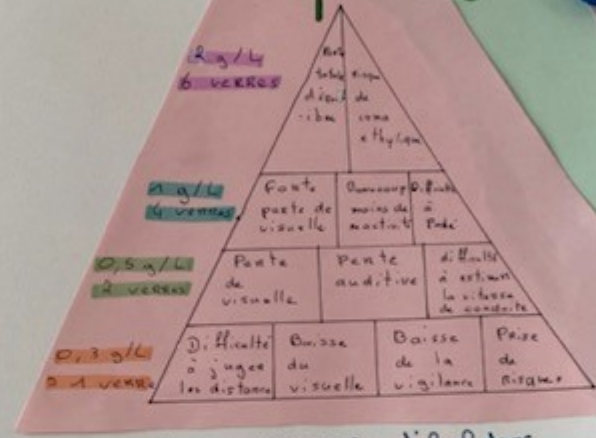 2 g/L
6 verres
Perte
totale
d'équilibre
risque
de
coma
éthylique
1 g/L
4 verres
Forte
perte de
visuelle
Beaucoup
moins de
réactivité
Difficulté
à
0,5 g/L
2 verres
Perte
de
visuelle
Perte
auditive
difficulté
à estimer
la vitesse
de conduite
0,3 g/L
1 verre
Difficulté
à juger
les distance
Baisse
du
visuelle
Baisse
de la
vigilance
Prise
de
risques